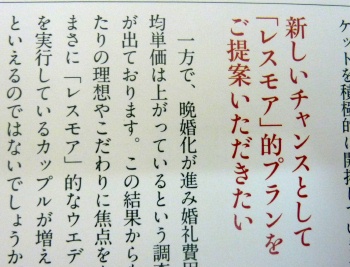 ケットを積極的に開拓してい
新しいチャンスとして
「レスモア」的プランを
ご提案いただきたい
一方で、晩婚化が進み婚礼費用
均単価は上がっているという調
が出ております。この結果からも
たりの理想やこだわりに焦点を
まさに「レスモア」的なウエデ
を実行しているカップルが増え
といえるのではないでしょうか